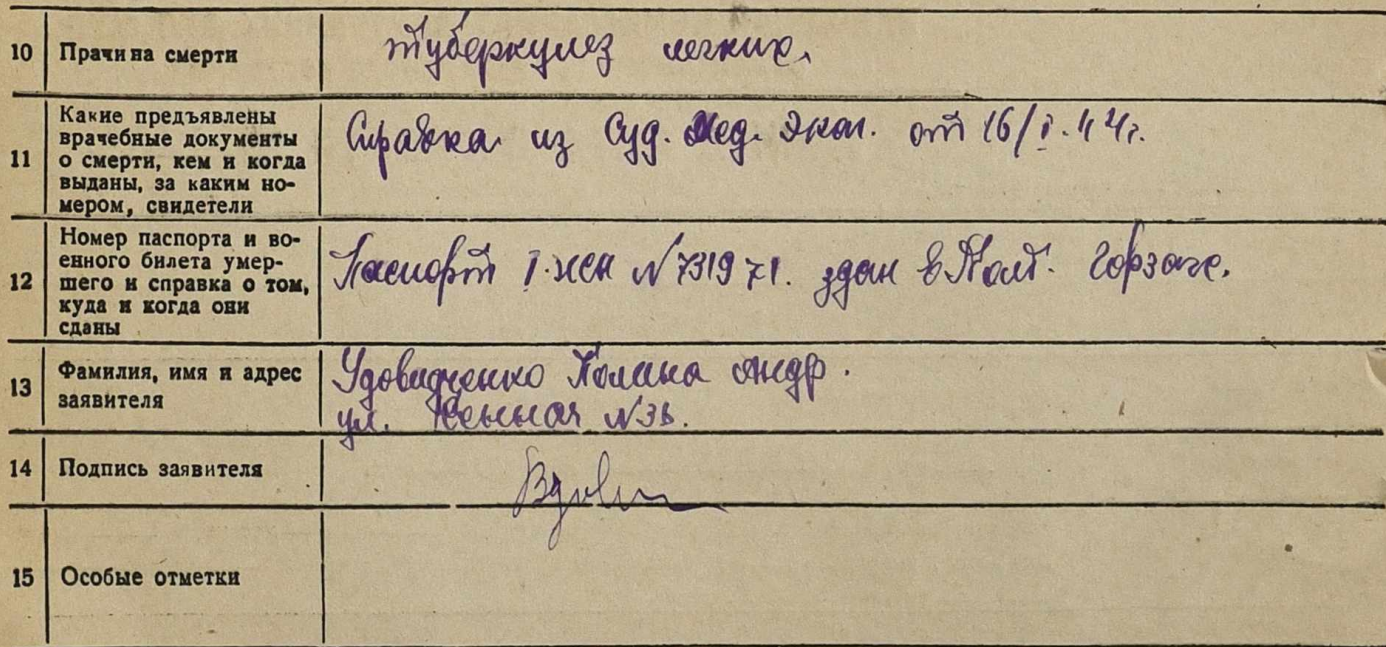 10 Прачина смерти туберкулез легких.
11 Какие предъявлены
врачебные документы
о смерти, кем и когда
выданы, за каким но-
мером, свидетели
Справка из Суд. Мед. Эксп. от 16/I.44г.
12 Номер паспорта и во-
енного билета умер-
шего и справка о том,
куда и когда они
сданы
Паспорт I. №731971. здан в Полт. Горзагс.
13 Фамилия, имя и адрес
заявителя
Удовидченко Полина Андр.
ул. Сенная №38.
14 Подпись заявителя
15 Особые отметки